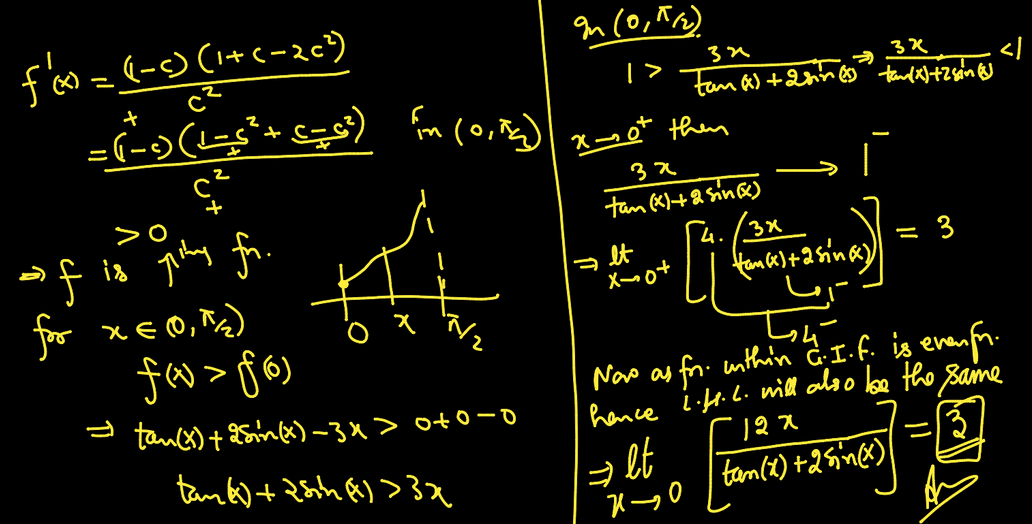 f'(x) = (1-c)(1+c-2c²)/c²
= (1-c)(1-c²+c-c²)/c² in (0, π/2)
+ + + +
> 0
⇒ f is ↑ing fn.
for x ∈ (0, π/2)
f(x) > f(0)
⇒ tan(x)+2sin(x)-3x > 0+0-0
tan(x)+2sin(x) > 3x
0 x π/2
In (0, π/2)
1 > 3x/(tan(x)+2sin(x)) ⇒ 3x/(tan(x)+2sin(x)) < 1
x→0⁺ then
3x/(tan(x)+2sin(x)) → 1⁻
⇒ lt x→0⁺ [4.(3x/(tan(x)+2sin(x)))] = 3
→1⁻
→4⁻
Now as fn. within G.I.F. is even fn.
hence L.H.L. will also be the same
⇒ lt x→0 [12x/(tan(x)+2sin(x))] = 3